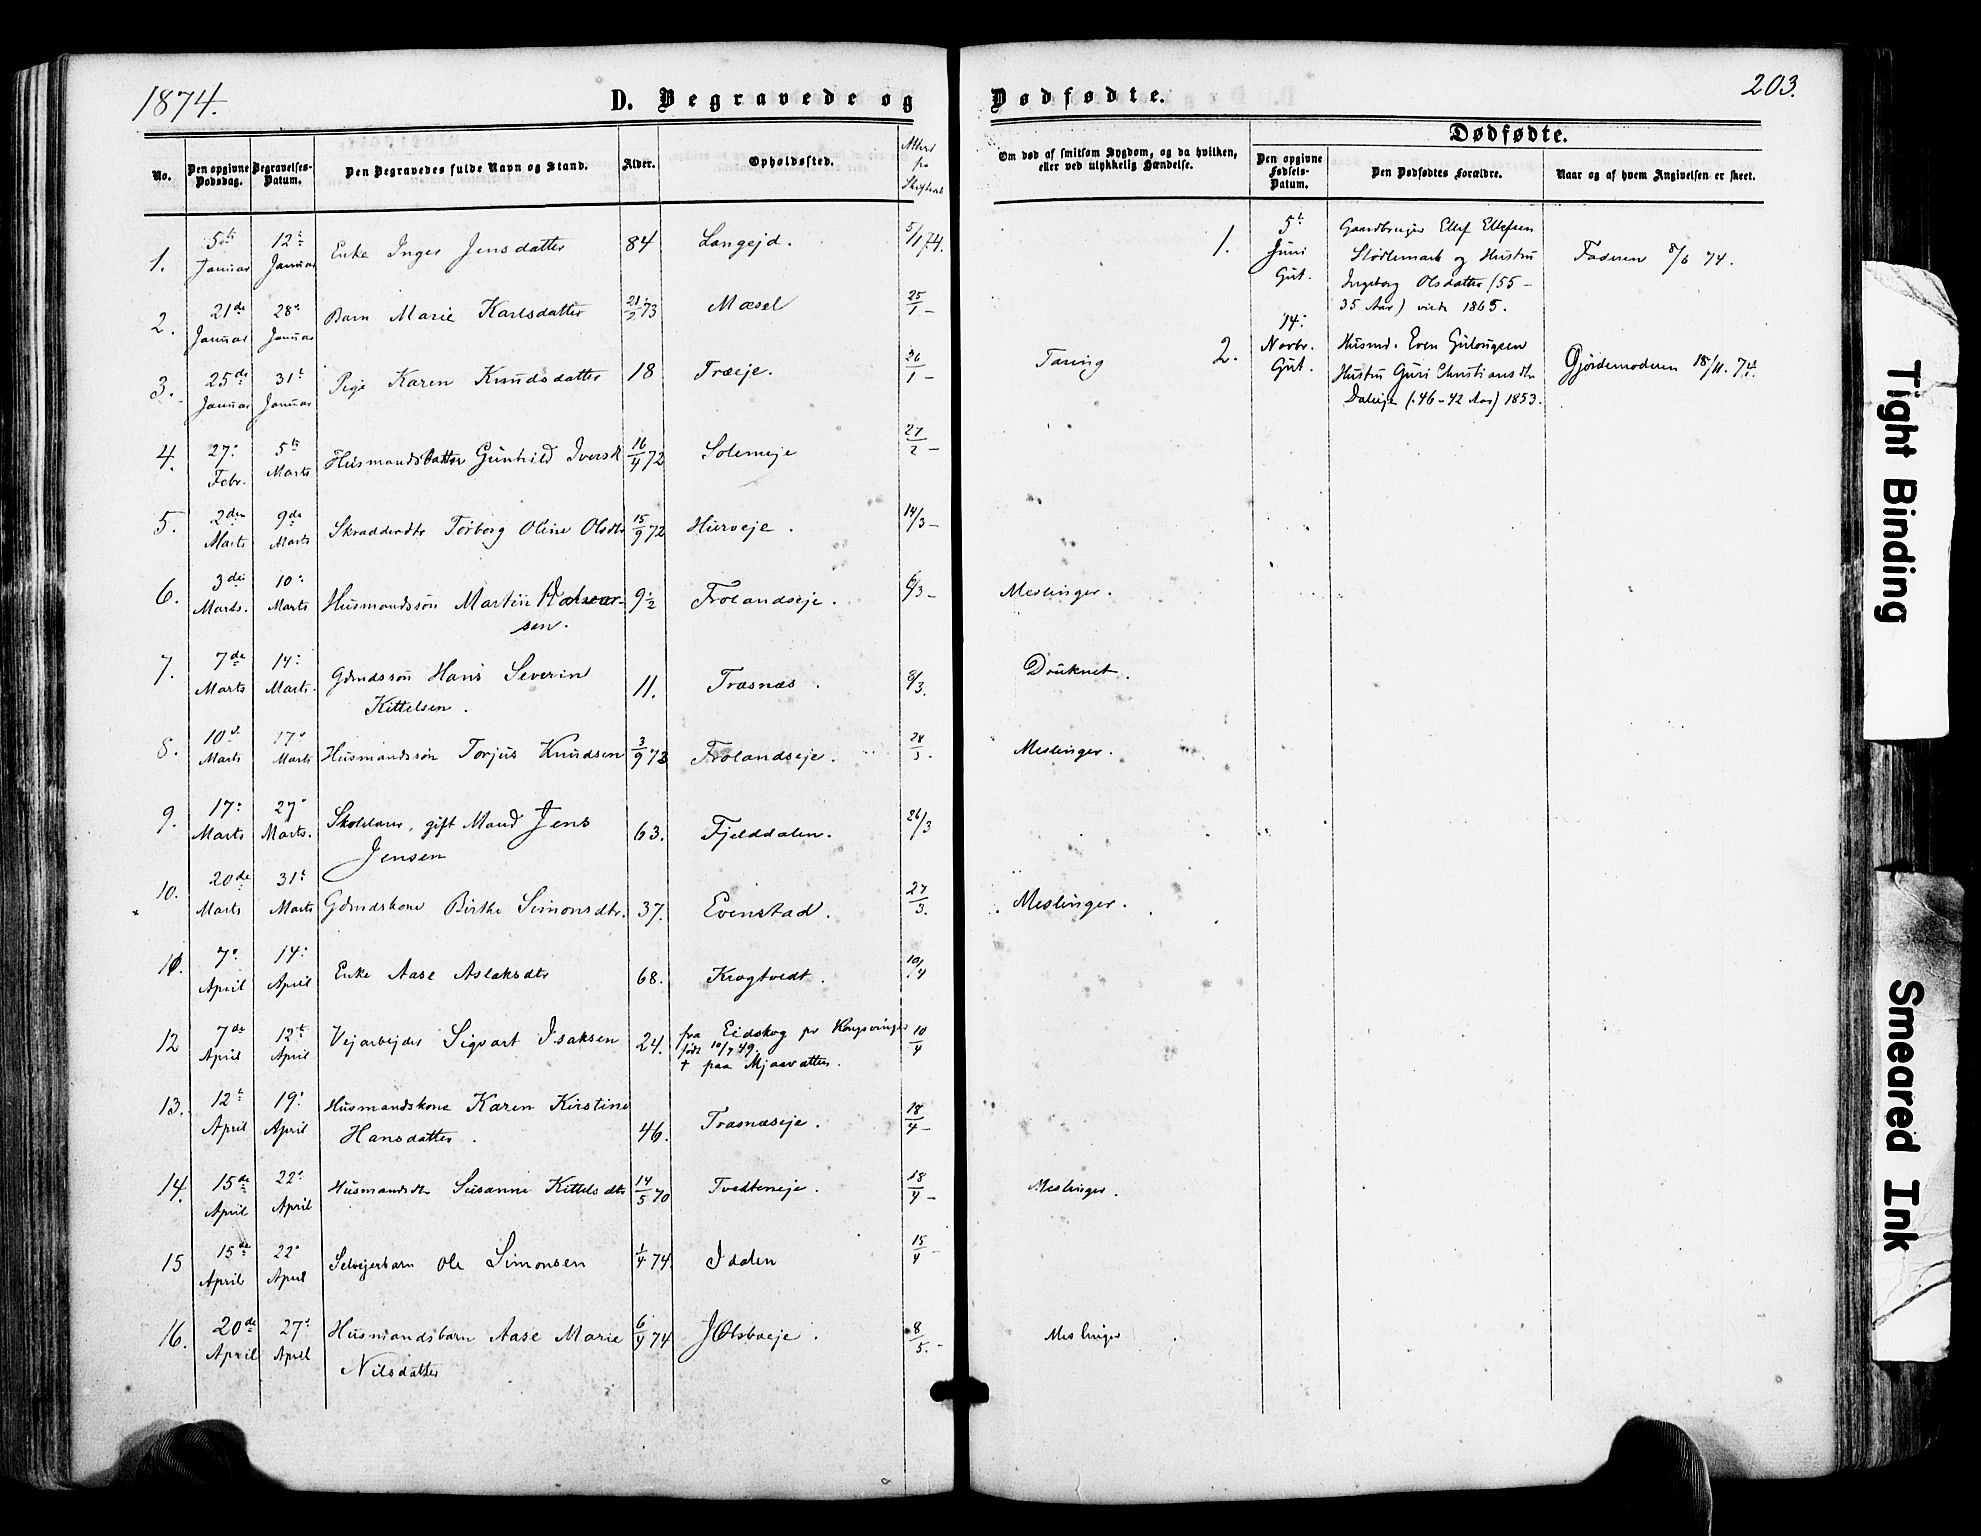 1874.
D. Begravede og Dødfødte.
203.
No.
Den opgivne Dødsdag.
Begravelses-Datum.
Den Begravedes fulde Navn og Stand.
Alder.
Opholdssted.
Attest
fra
Om død af smitsom Sygdom, og da hvilken, eller ved ulykkelig Hændelse.
Dødfødte.
Den opgivne Fødsels-Datum.
Den Dødfødtes Forældre.
Naar og af hvem Angivelsen er skeet.
1. 5te Januar 12te Januar Enke Inger Jensdatter 84 Langejd. 5/1 74.
2. 21de Januar 28de Januar Barn Marie Karlsdatter 21/2 73 Mæsel 25/1 –
3. 25de Januar 31te Januar Pige Karen Knudsdatter 18 Træeje. 26/1 – Tæring
4. 27: Febr. 5te Marts Husmandsdatter Gunhild Iversdt 16/4 72 Solemeje 27/2 –
5. 2den Marts 9de Marts Skrædderdtr Torborg Oline Olsdtr 15/9 72 Hurveje. 14/3 –
6. 3die Marts. 10: Marts Husmandssøn Martin Halvor- 9 1/2 Frolandseje. 6/3 – Meslinger.
sen.
7. 7de Marts 14: Marts. Gdmdssøn Hans Severin 11. Trasnæs. 8/3. Druknet.
Kittelsen.
8. 10de Marts 17: Marts Husmandssøn Torjus Knudsen 3/9 73 Frolandseje. 28/3. Meslinger.
9. 17: Marts 27: Marts. Skolelærer, gift Mand Jens 63. Fjelddalen. 26/3
Jensen
10. 20de Marts 31te Marts Gdmdskone Birthe Simonsdtr. 37. Evenstad. 27/3. Meslinger.
11. 7de April 14: April Enke Aase Aslaksdtr 68. Krogtvedt. 10/4
12 7de April 12te April Vejarbejder Sigvart Isaksen 24. fra Eidskog pr Kongsvinger 10/4
født 10/7 49.
† paa Mjaavatten.
13. 12te April 19: April Husmandskone Karen Kirstine
Hansdatter. 46. Trasnæseje. 18/4 –
14. 15de April 22: April Husmandsdtr Susanne Kittelsdtr 14/5 70 Tvedteneje. 18/4 – Meslinger.
15 15de April 22: April Selvejerbarn Ole Simonsen 1/4 74. Idalen 15/4 –
16. 20de April 27: April Husmandsbarn Aase Marie 6/4 74 Ølsbueje. 8/5. – Meslinger
Nilsdatter
1. 5te Juni Gut. Gaardbruger Ellef Ellefsen
Stødlemark og Hustru Faderen 8/6 74.
Ingeborg Olsdatter (55 –
35 Aar) viede 1865.
2. 14: Novbr. Gut. Husmd. Even Gulougsen
Hustru Guri Christiansdtr Gjordemoderen 18/11. 74.
Daleeje (46 – 42 Aar) 1853.
Tight Binding
Smeared Ink